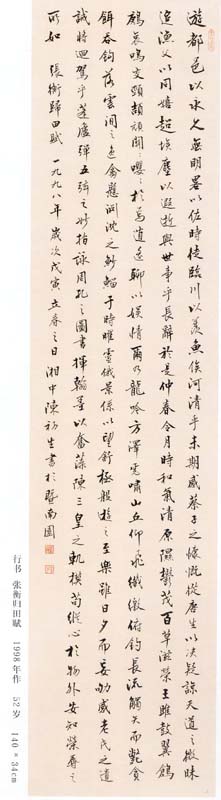 遊都邑以永久無明略以佐時徒臨川以羨魚俟河清乎未期感蔡子之慷慨從唐生以決疑諒天道之微昧
追漁父以同嬉超埃塵以遐逝與世事乎長辭於是仲春令月時和氣清原隰鬱茂百草滋榮王雎鼓翼鶬
鶊哀鳴交頸頡頏關〻嚶〻於焉逍遙聊以娛情爾乃龍吟方澤虎嘯山丘仰飛纖繳俯釣長流觸矢而斃貪
餌吞鉤落雲間之逸禽懸淵沉之魦鰡于時曜靈俄景係以望舒極般遊之至樂雖日夕而忘劬感老氏之遺
誡將迴駕乎蓬廬彈五弦之妙指詠周孔之圖書揮翰墨以奮藻陳三皇之軌模苟縱心於物外安知榮辱之
所如 張衡歸田賦 一九九八年歲次戊寅立春之日湘中陳初生書於暨南園
行书 张衡归田赋 1998年作 52岁 140×34cm